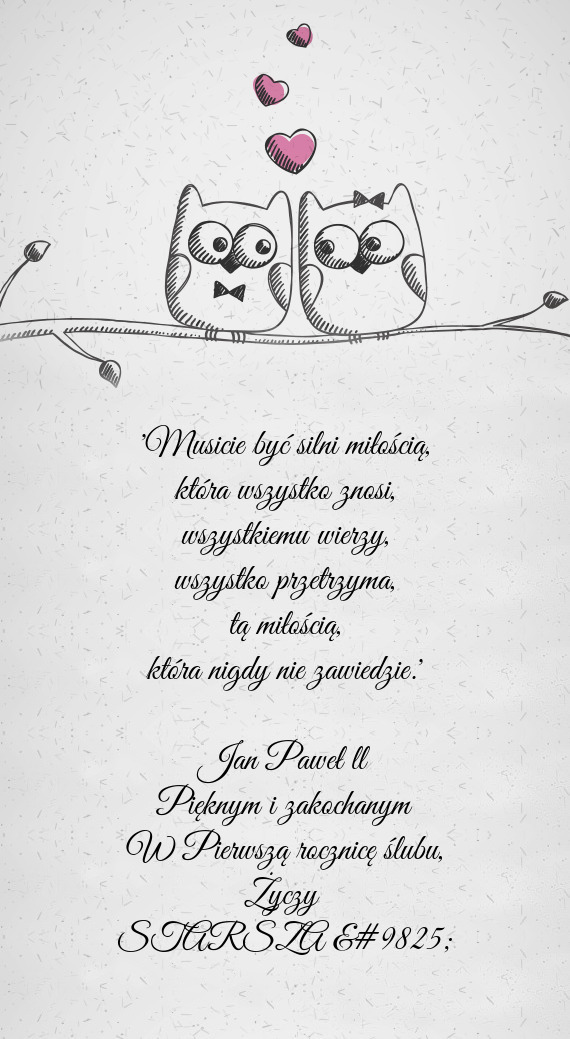 'Musicie być silni miłością,
która wszystko znosi,
wszystkiemu wierzy,
wszystko przetrzyma,
tą miłością,
która nigdy nie zawiedzie.'
Jan Paweł ll
Pięknym i zakochanym
W Pierwszą rocznicę ślubu,
Życzy
STARSZA &#9825;